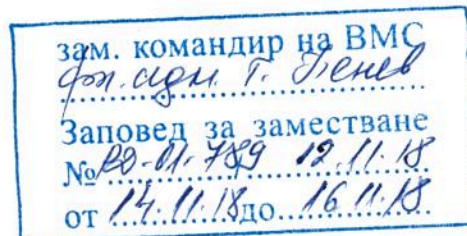 зам. командир на ВМС
фл. адм. Г. Пенев
Заповед за заместване
№ РД-01-789 12.11.18
от 14.11.18 до 16.11.18